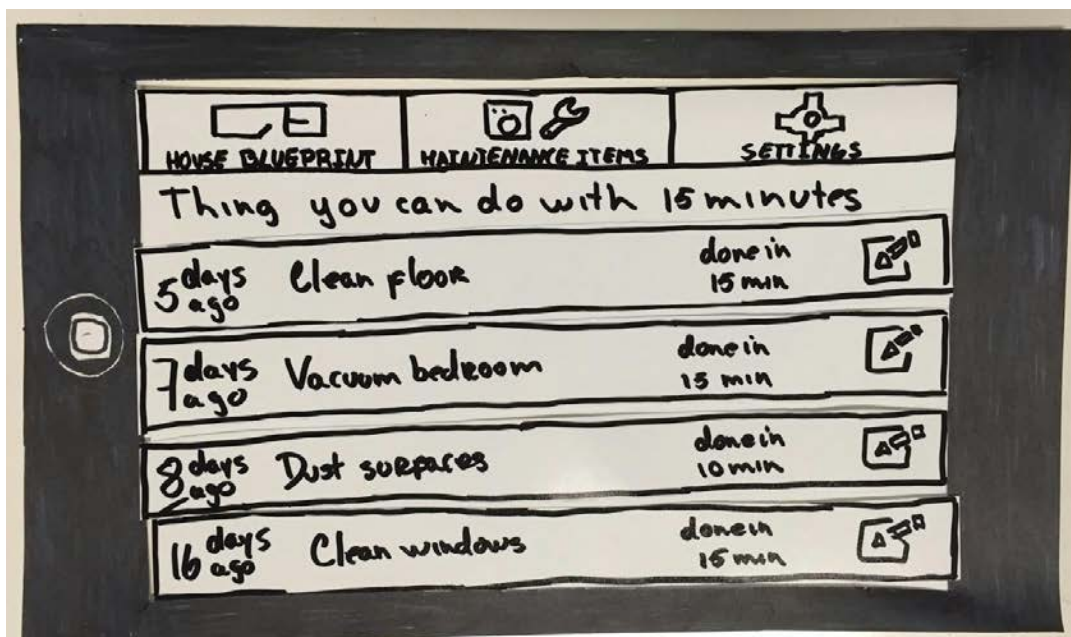 HOUSE BLUEPRINT
MAINTENANCE ITEMS
SETTINGS
Thing you can do with 15 minutes
5 days ago
Clean floor
done in
15 min
7 days ago
Vacuum bedroom
done in
15 min
8 days ago
Dust surfaces
done in
10 min
16 days ago
Clean windows
done in
15 min